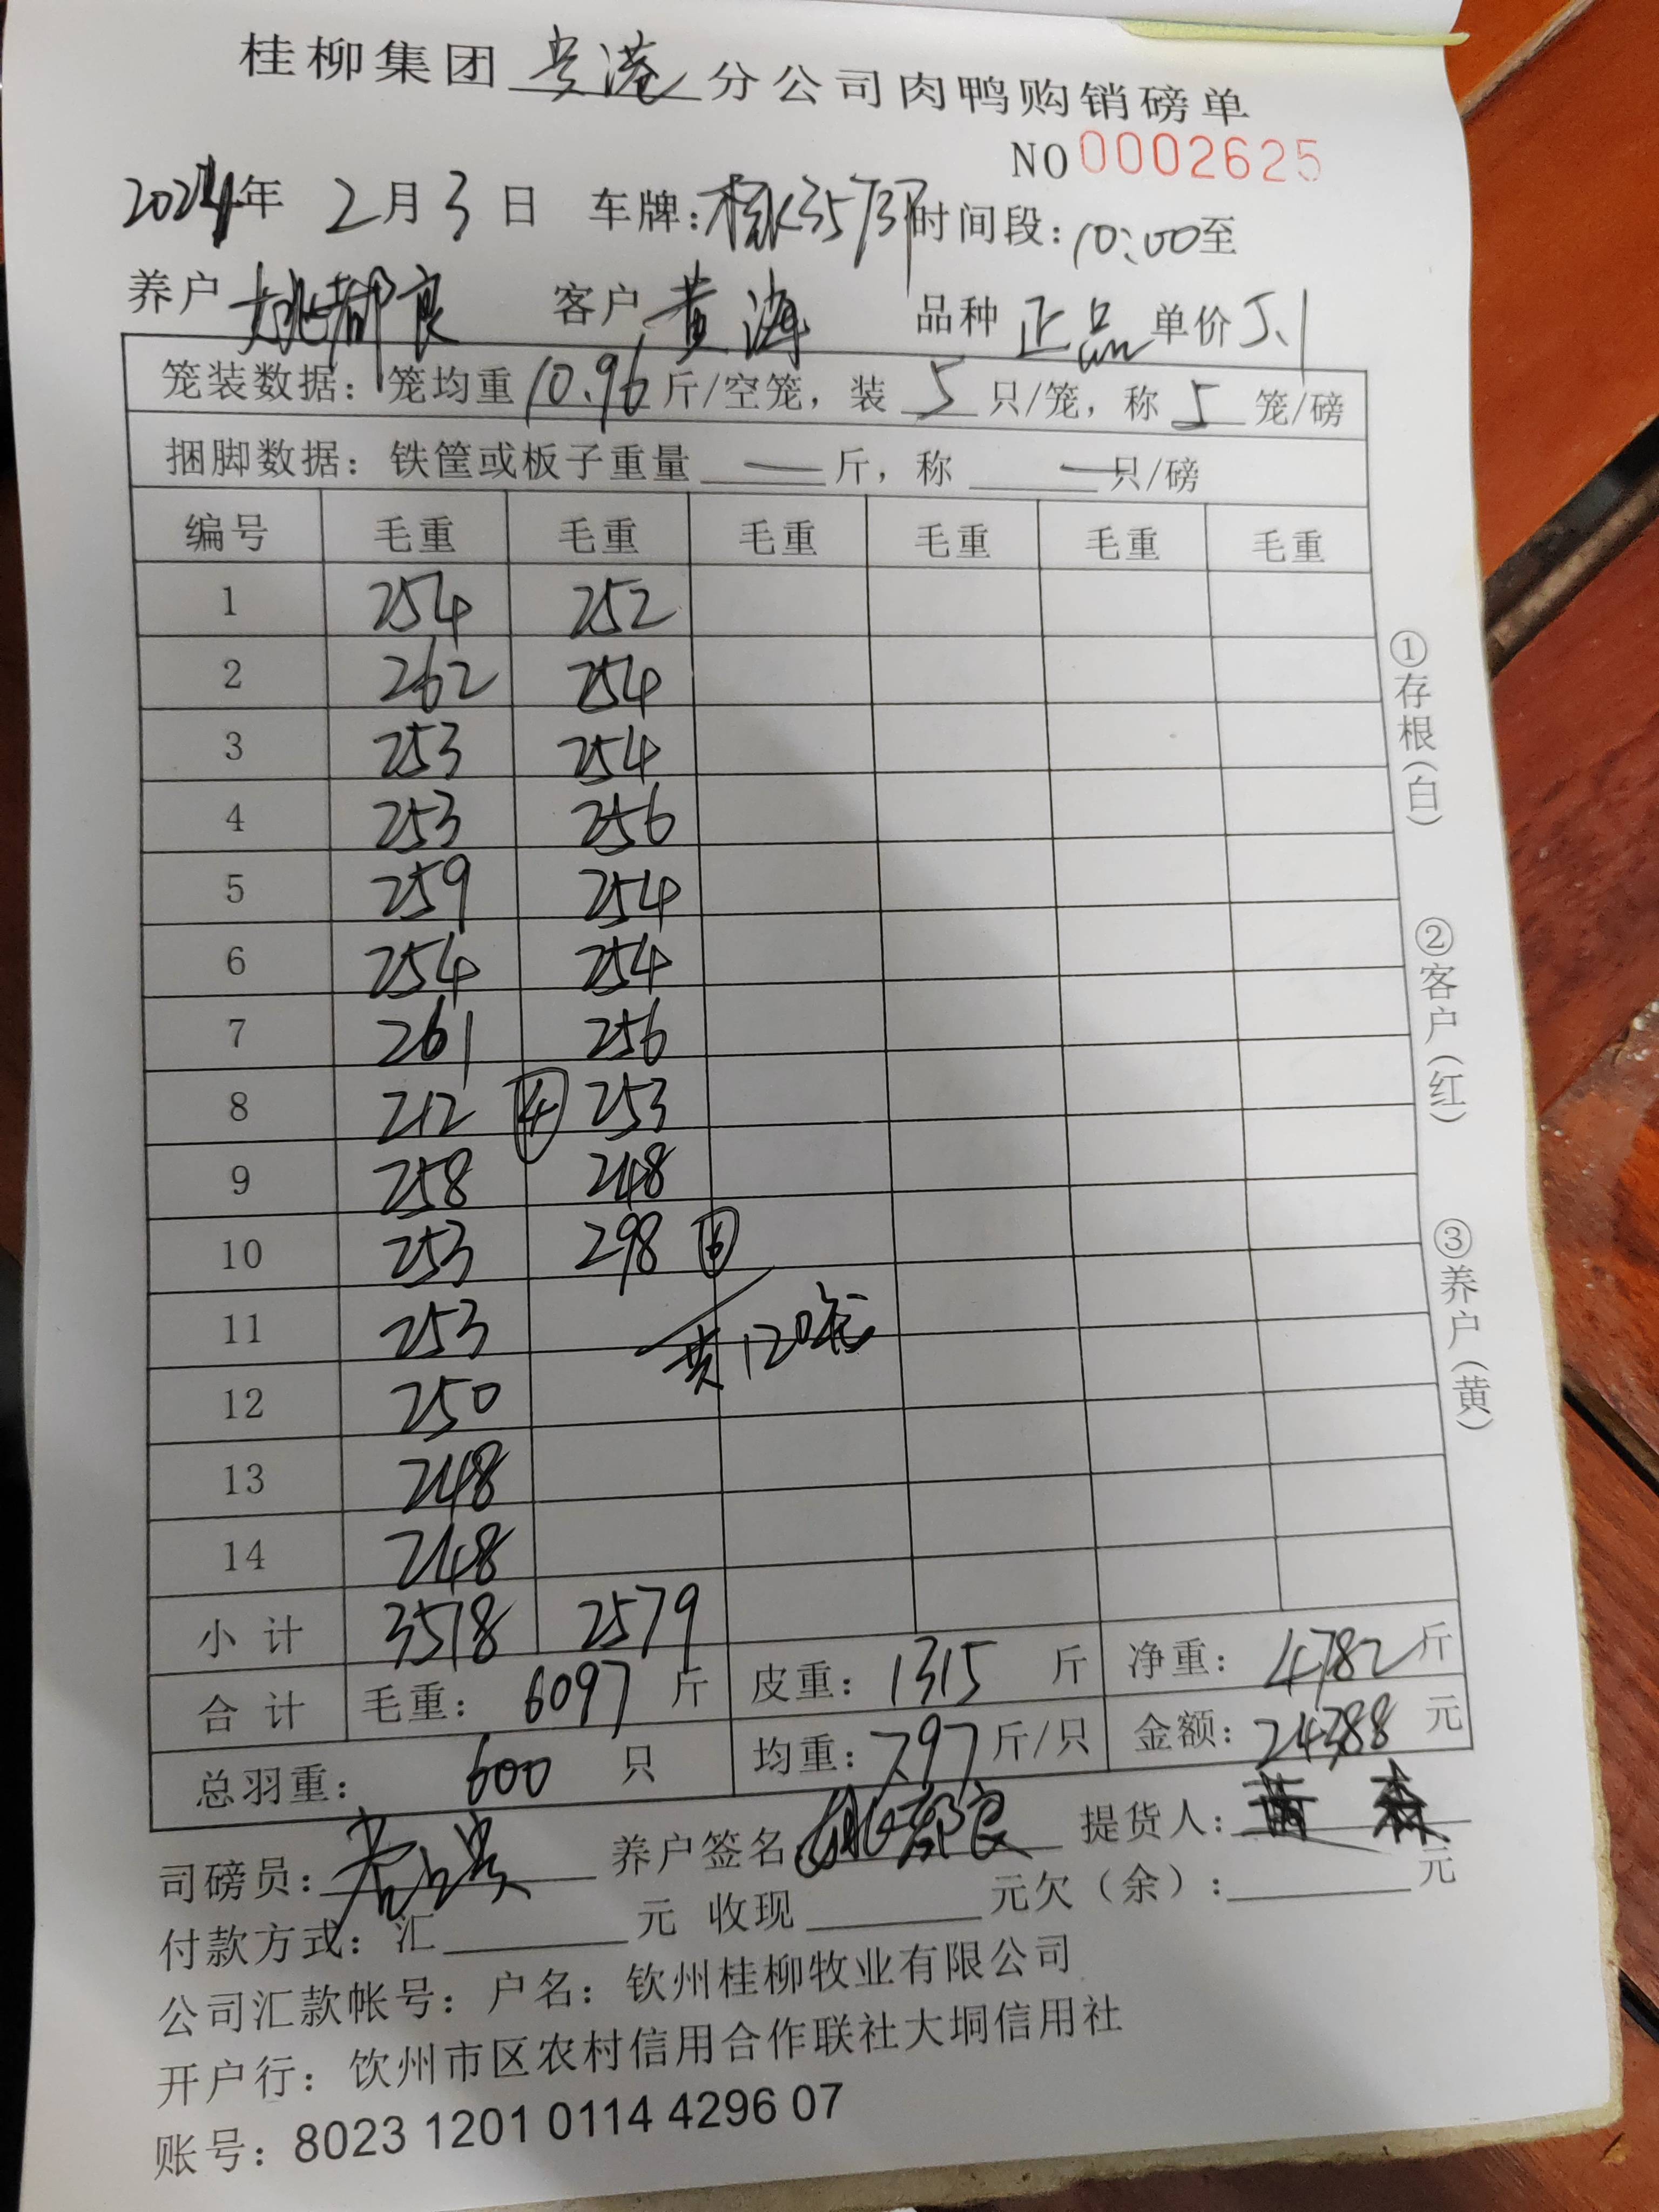 桂柳集团 贵港 分公司肉鸭购销磅单
NO 0002625
2024年 2月3日 车牌: 时间段:10:00至
养户 姚都良 客户 黄海 品种 正品 单价 5.1
笼装数据: 笼均重 10.96 斤/空笼, 装 5 只/笼, 称 5 笼/磅
捆脚数据: 铁筐或板子重量 — 斤, 称 — 只/磅
编号 毛重 毛重 毛重 毛重 毛重 毛重
1 254 252
2 262 254
3 253 254
4 253 256
5 259 254
6 254 254
7 261 256
8 212 ④ 253
9 258 248
10 253 298 ⑥
11 253 共120笼
12 250
13 248
14 248
小计 3518 2579
合计 毛重: 6097 斤 皮重: 1315 斤 净重: 4782 斤
总羽重: 600 只 均重: 7.97 斤/只 金额: 24388 元
司磅员: 养户签名 姚都良 提货人: 黄 森
付款方式: 汇 元 收现 元欠(余): 元
公司汇款帐号: 户名: 钦州桂柳牧业有限公司
开户行: 钦州市区农村信用合作联社大垌信用社
账号: 8023 1201 0114 4296 07
①存根(白)
②客户(红)
③养户(黄)